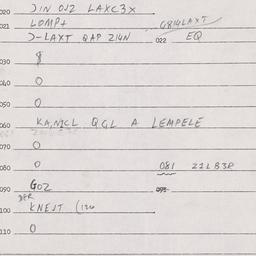 020 JIN OJZ LAXC3X
021 LOMP+ 0814LAXT
J-LAXT QAP Z14N 022 EQ
030
040 0
050 0
060 KA,NICL QGL A LEMPELE
070 0
080 0 081 22LB3R
090 GOZ
100 KNEJT (126
110 0